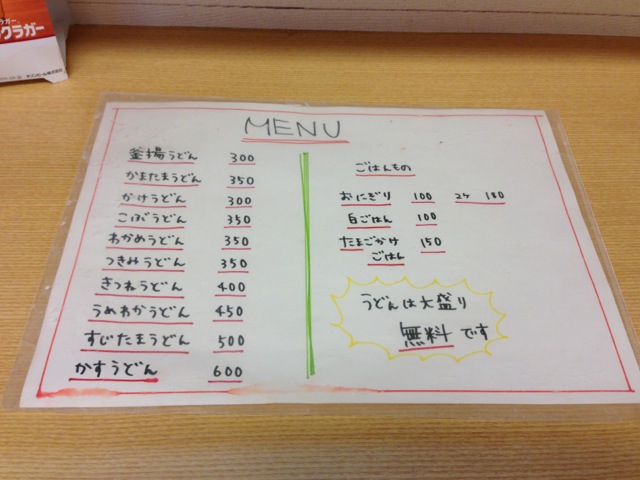 ラガー
クラガー
MENU
釜揚うどん 300
かまたまうどん 350
かけうどん 300
こぶうどん 350
わかめうどん 350
つきみうどん 350
きつねうどん 400
うめわかうどん 450
すじたまうどん 500
かすうどん 600
ごはんもの
おにぎり 100 2ケ 180
白ごはん 100
たまごかけ 150
ごはん
うどんは大盛り
無料です